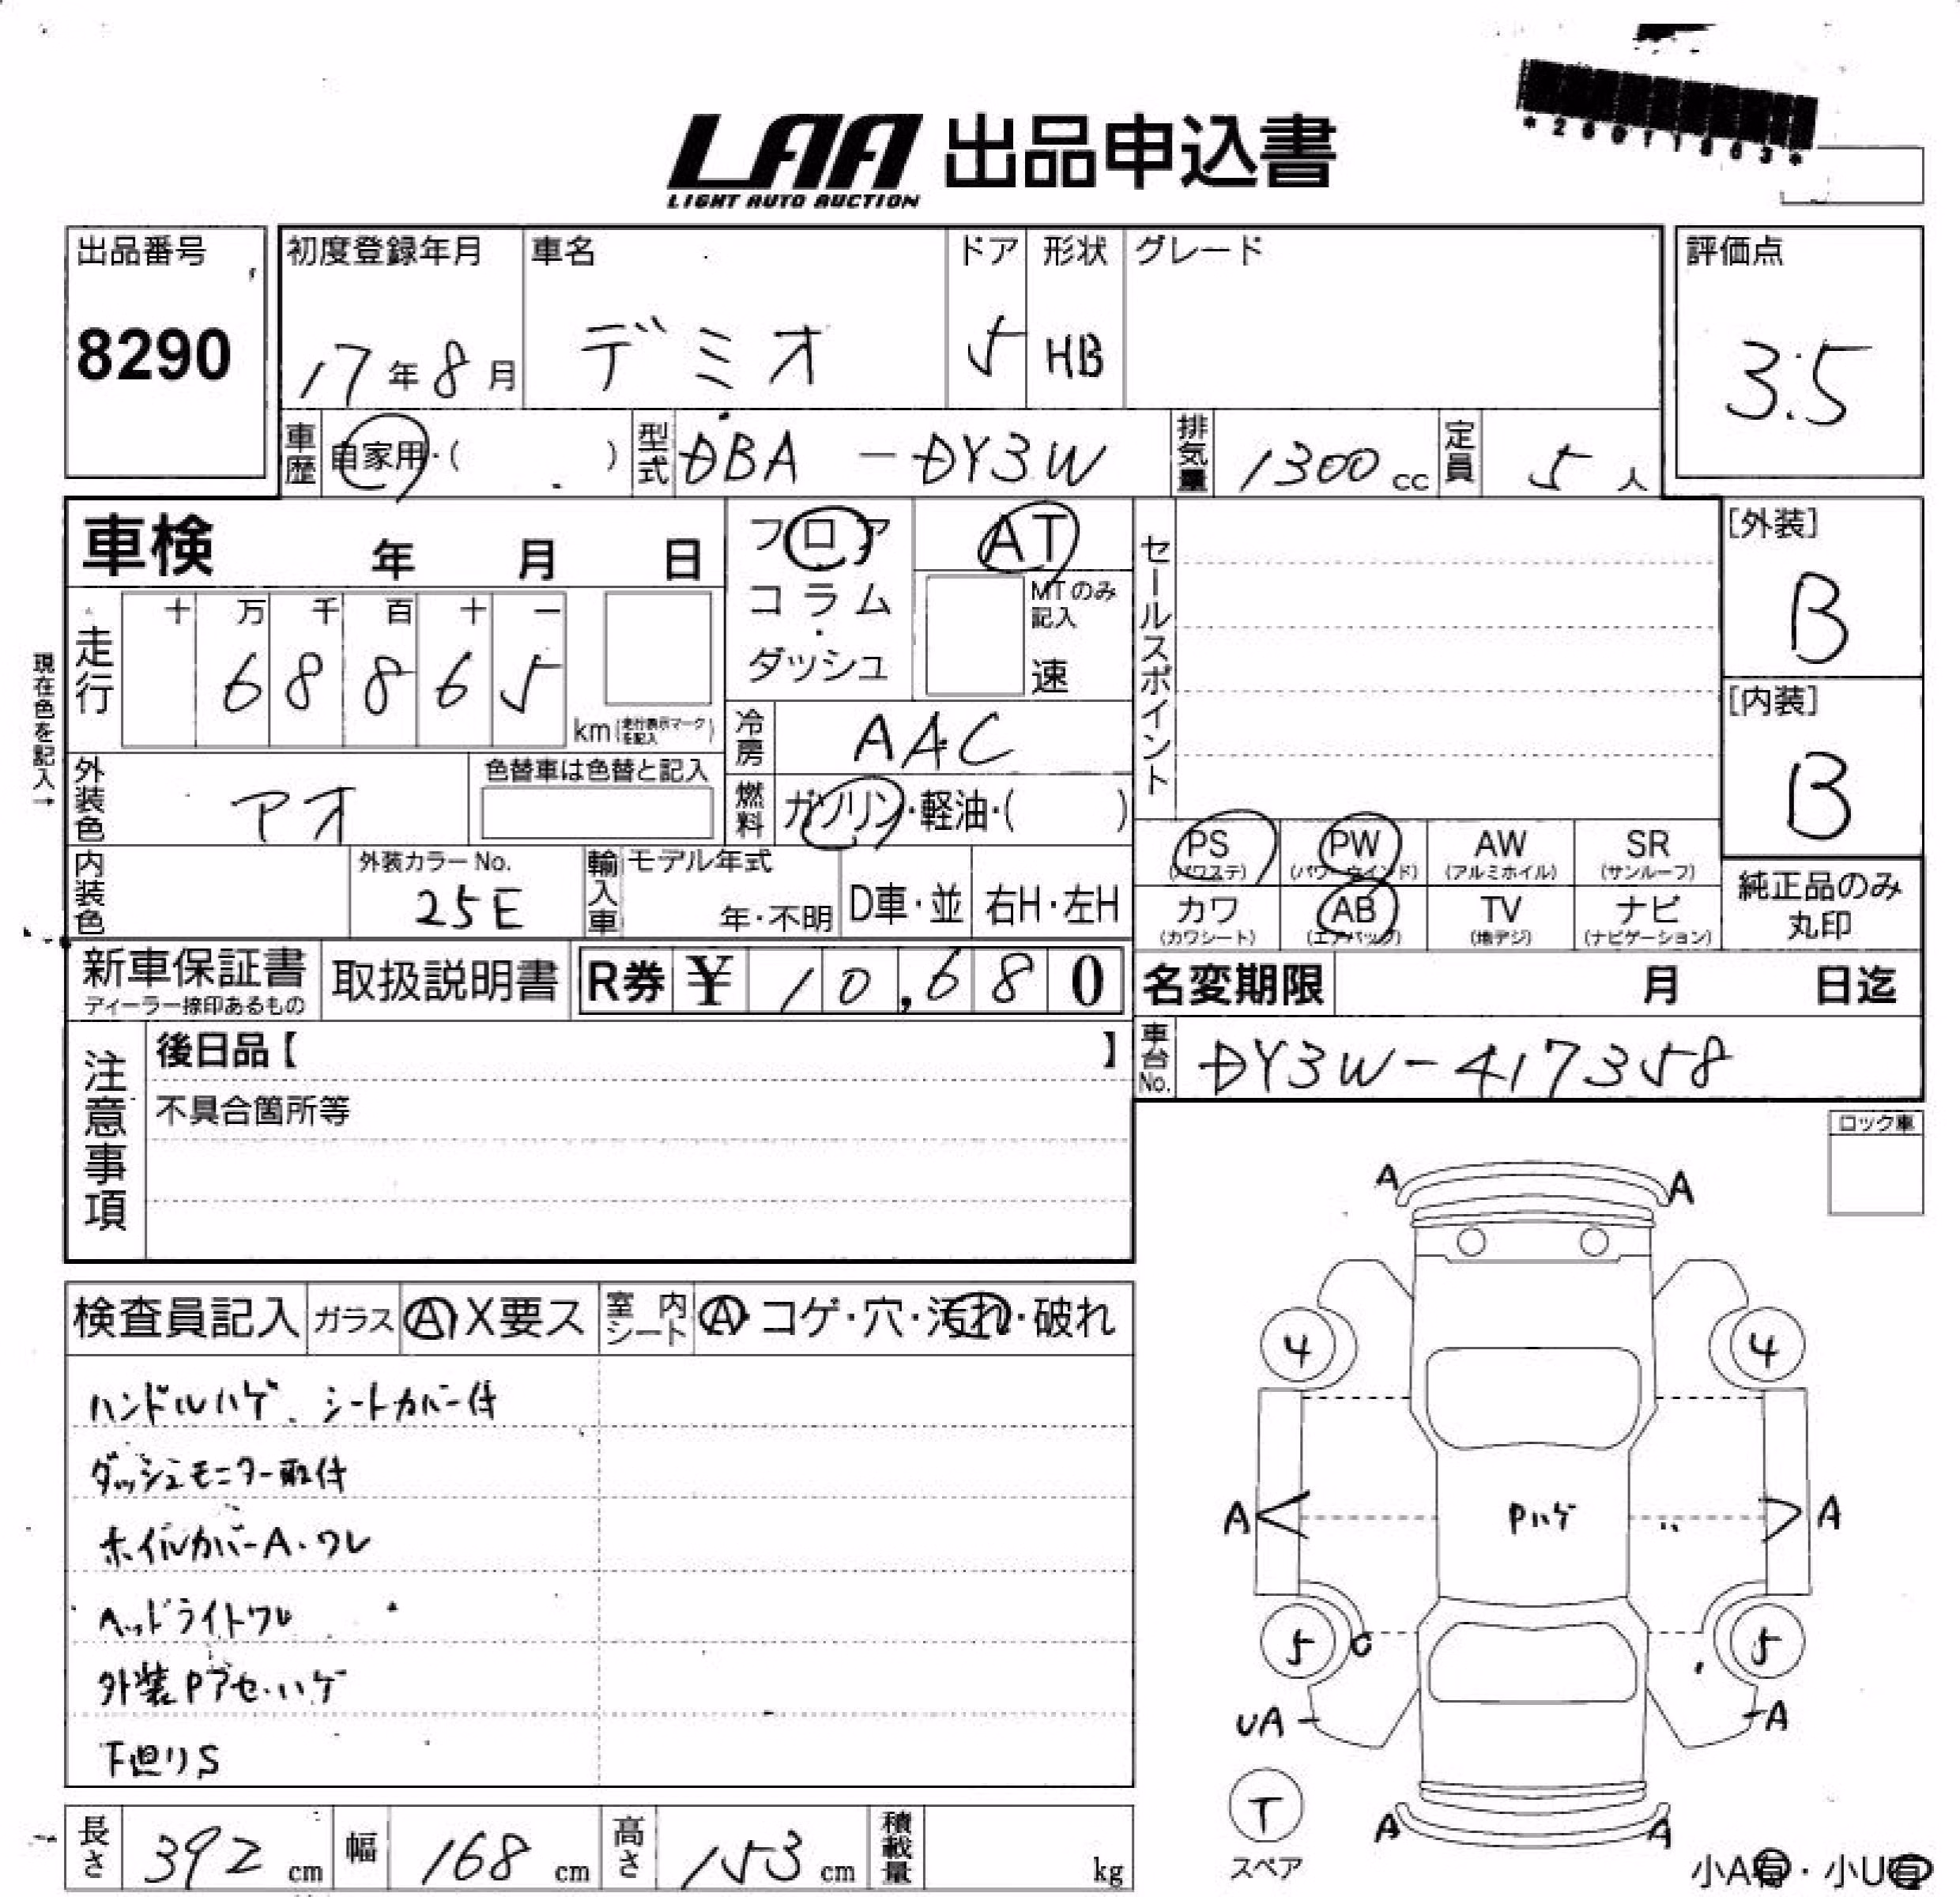 *26011863*
LAA 出品申込書
LIGHT AUTO AUCTION
出品番号
8290
初度登録年月
17年8月
車名
デミオ
ドア
5
形状
HB
グレード
評価点
3.5
車歴 自家用・( )
型式 DBA-DY3W
排気量 1300cc
定員 5人
車検 年 月 日
フロア
コラム
・
ダッシュ
AT
MTのみ
記入
速
セールスポイント
[外装]
B
[内装]
B
現在色を記入→
走行
十 万 千 百 十 一
6 8 8 6 5
km(走行表示マークを記入)
冷房 AAC
外装色 アオ
色替車は色替と記入
燃料 ガソリン・軽油・( )
PS
(パワステ)
PW
(パワーウインド)
AW
(アルミホイル)
SR
(サンルーフ)
カワ
(カワシート)
AB
(エアバッグ)
TV
(地デジ)
ナビ
(ナビゲーション)
純正品のみ
丸印
内装色
外装カラーNo.
25E
輸入車
モデル年式
年・不明
D車・並
右H・左H
新車保証書
ディーラー捺印あるもの
取扱説明書
R券 ¥ 10,680
名変期限 月 日迄
車台No. DY3W-417358
注意事項
後日品【 】
不具合箇所等
ロック車
検査員記入 ガラス A X要ス
室内シート A・コゲ・穴・汚れ・破れ
ハンドルハゲ、シートカバー付
ダッシュモニター取付
ホイルカバーA・ワレ
ヘッドライトワレ
外装Pアセ・ハゲ
下廻りS
A A
4 4
A Pハゲ A
5 C 5
UA A
T
スペア
A A
小A有・小U有
長さ 392cm
幅 168cm
高さ 153cm
積載量 kg